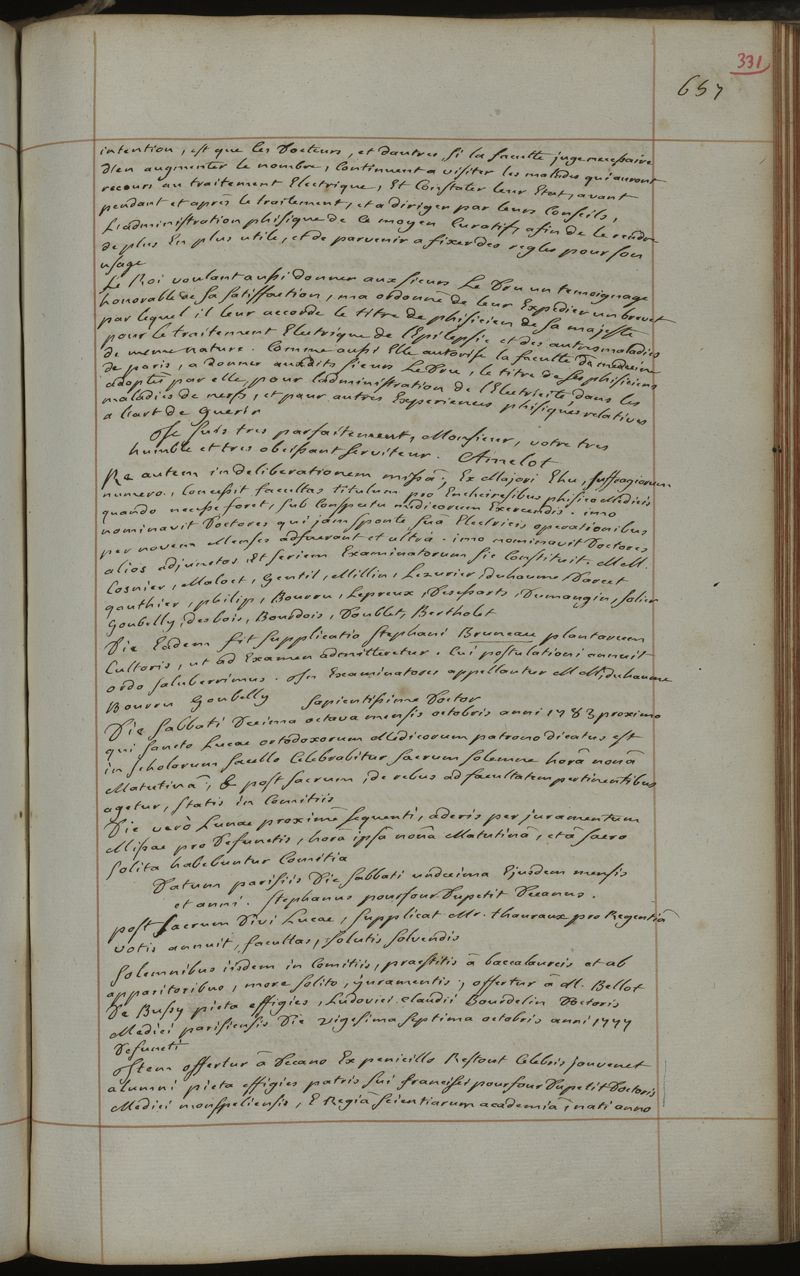 331
657
intention, est que les Docteurs, et dautres, si la faculté juge necessaire
d'en augmenter le nombre, Continuent a visiter les malades qui auront
recours au traitement Electrique, Et Constater leur Etat, avant
pendant et après le traitement, et a diriger par leurs Conseils,
L'administration phisique de Ce moyen Curatif, afin de le rendre
de plus En plus utile, et de parvenir a fixer des regles pour son
usage
Le Roi voulant aussi donner aux sieurs Le Dru un temoignage
honorable de sa satisfaction, m'a ordonné de leur Expedier un brevet
par lequel il leur accorde le titre de phisicien de sa majesté
pour le traitement Electrique de l'Epilepsie et des autres maladies
de meme nature. Comme aussi Elle autorise la faculté de medecine
de paris, a donner auxdits sieurs Le Dru, le titre de ses phisiciens
adoptés par elle, pour l'administration de l'Electricité, dans les
maladies de nerfs, et pour autres Experiences phisiques relatives
a l'art de Guerir
Je suis tres parfaitement, Monsieur, votre tres
humble et tres obeissant serviteur. Amelot
Re autem in deliberationem missâ, Ex Majori Ehu, suffragiorum
numero, Concessit facultas titulum pro Encheiresibus phisico Medicis
quando necesse foret, sub Conspectu medicorum Exercendis. imo
nominavit Doctores qui jam sponte suâ Electricis operationibus
per novem Menses adfuerant et ultrà. imo nominavit Doctores
alios adjunctos Et seriem Examinatorum sic Constituit. MM.
Cosnier, Maloet, Gentil, Millin, Lezurier, duhaume Darcet
gauthier, philip, Bourru, Lepreux, Desessarts, Dumangin, solier
Goubelly, desbois, Bourdois, Doublet, Bertholet
Die Eâdem fit supplicatio Stephani Bruneau plantarum
Cultoris, ut ad Examen admitteretur. Cui postulationi annuit
ordo saluberrimus. In Examinatores appellantur MM. duhaume
Bourru Goubelly sapientissime Doctor
Die sabbati Decima octava mensis octobris anni 1783 proximo
qui sancto Lucae ortodoxorum Medicorum patrono dicatus est
in scholorum sacello Celebrabitur sacrum solemne horâ nonâ
Matutinâ, & post sacrum, de rebus ad facultatem pertinentibus
agetur, statis in Comitiis
Die verò Lunae proximè sequenti, aderis per juramentum
Missae pro Defunctis, horâ ipsâ nonâ Matutinâ, et â sacro
solita habebuntur Comitia
Datum parisiis Die sabbati undecima Ejusdem mensis
et anni. Stephanus pourfour Dupetit Decanus.
post sacrum Divi Lucae, supplicat Mr. thauraux pro Regentiâ
votis annuit, facultas, solutis solvendis
Solemnibus iisdem in Comitiis, praestitis â baccalaureis et ab
apparitoribus, more solito, juramentis, offertur â M. Bellot
De Bussy picta effigies, Ludovici Claudii Bourdelin Doctoris
Medici parisiensis Die vigesima septima octobris anni 1777
Defuncti
Item offertur â Decano Ex penicillo Restout Celebris Jouvenet
alumni picta effigies patris sui francisci pourfour Dupetit Doctoris
Medici monspeliensis, E Regiâ scientiarum academiâ, nati anno